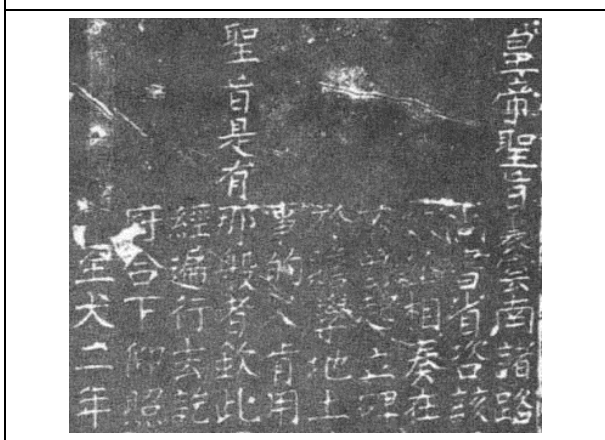 皇帝聖旨裏云南諸路
尚書省咨該
相奏在
立碑
學地土
事的人肯用
聖旨是有那般者欽此
經遍行去訖
府合下仰照
至大二年